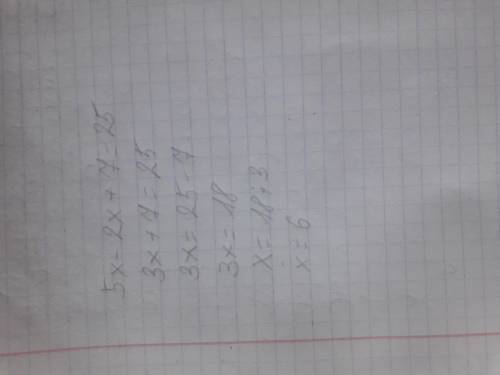 5x-2x+7=25
3x+7=25
3x=25-7
3x=18
x=18:3
x=6